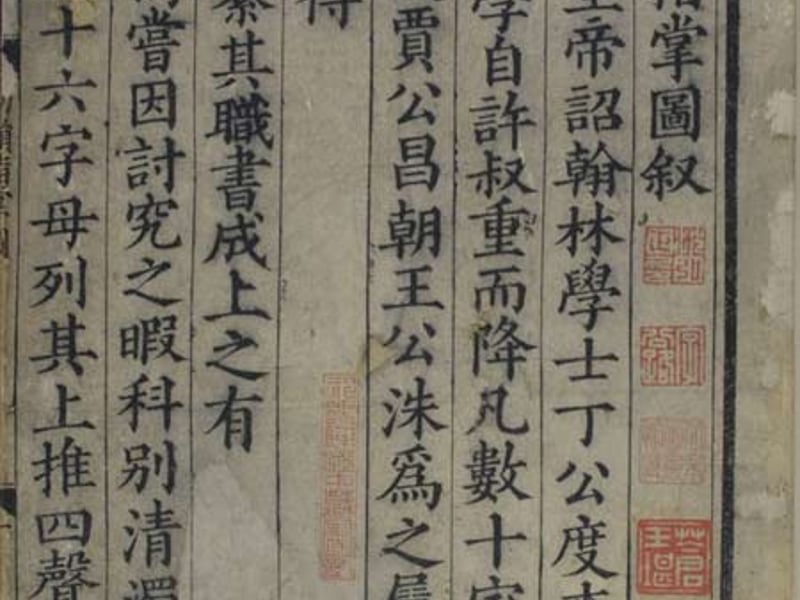 掌圖叙
帝詔翰林學士丁公度
學自許叔重而降凡數十家
賈公昌朝王公洙爲之屬
得
纂其職書成上之有
嘗因討究之暇科别清濁
十六字母列其上推四聲